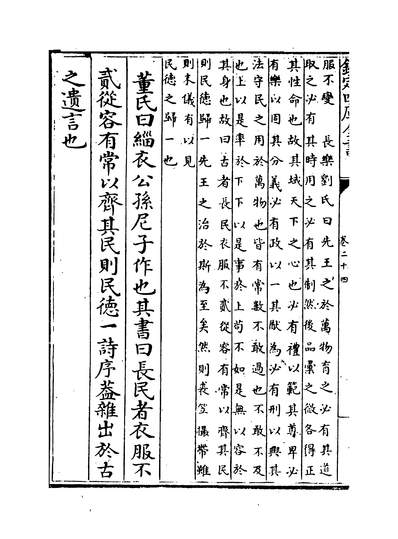 欽定四庫全書
卷二十四
服不變　長樂劉氏曰先王之於萬物育之必有其道
取之必有其時用之必有其制然後品彙之微各得正
其性命也故其域天下之心也必有禮以範其尊卑必
有樂以固其分義必有政以一其猷為必有刑以興其
法守民之用於萬物也皆有常數不敢過也不敢不及
也上以是率於下下以是事於上苟不如是無以容於
其身也故曰古者長民衣服不貳從容有常以齊其民
則民德歸一先王之治於斯為至矣然則臺笠緇帶雖
則末議有以見
民德之歸一也
董氏曰緇衣公孫尼子作也其書曰長民者衣服不
貳從容有常以齊其民則民德一詩序蓋雜出於古
之遺言也